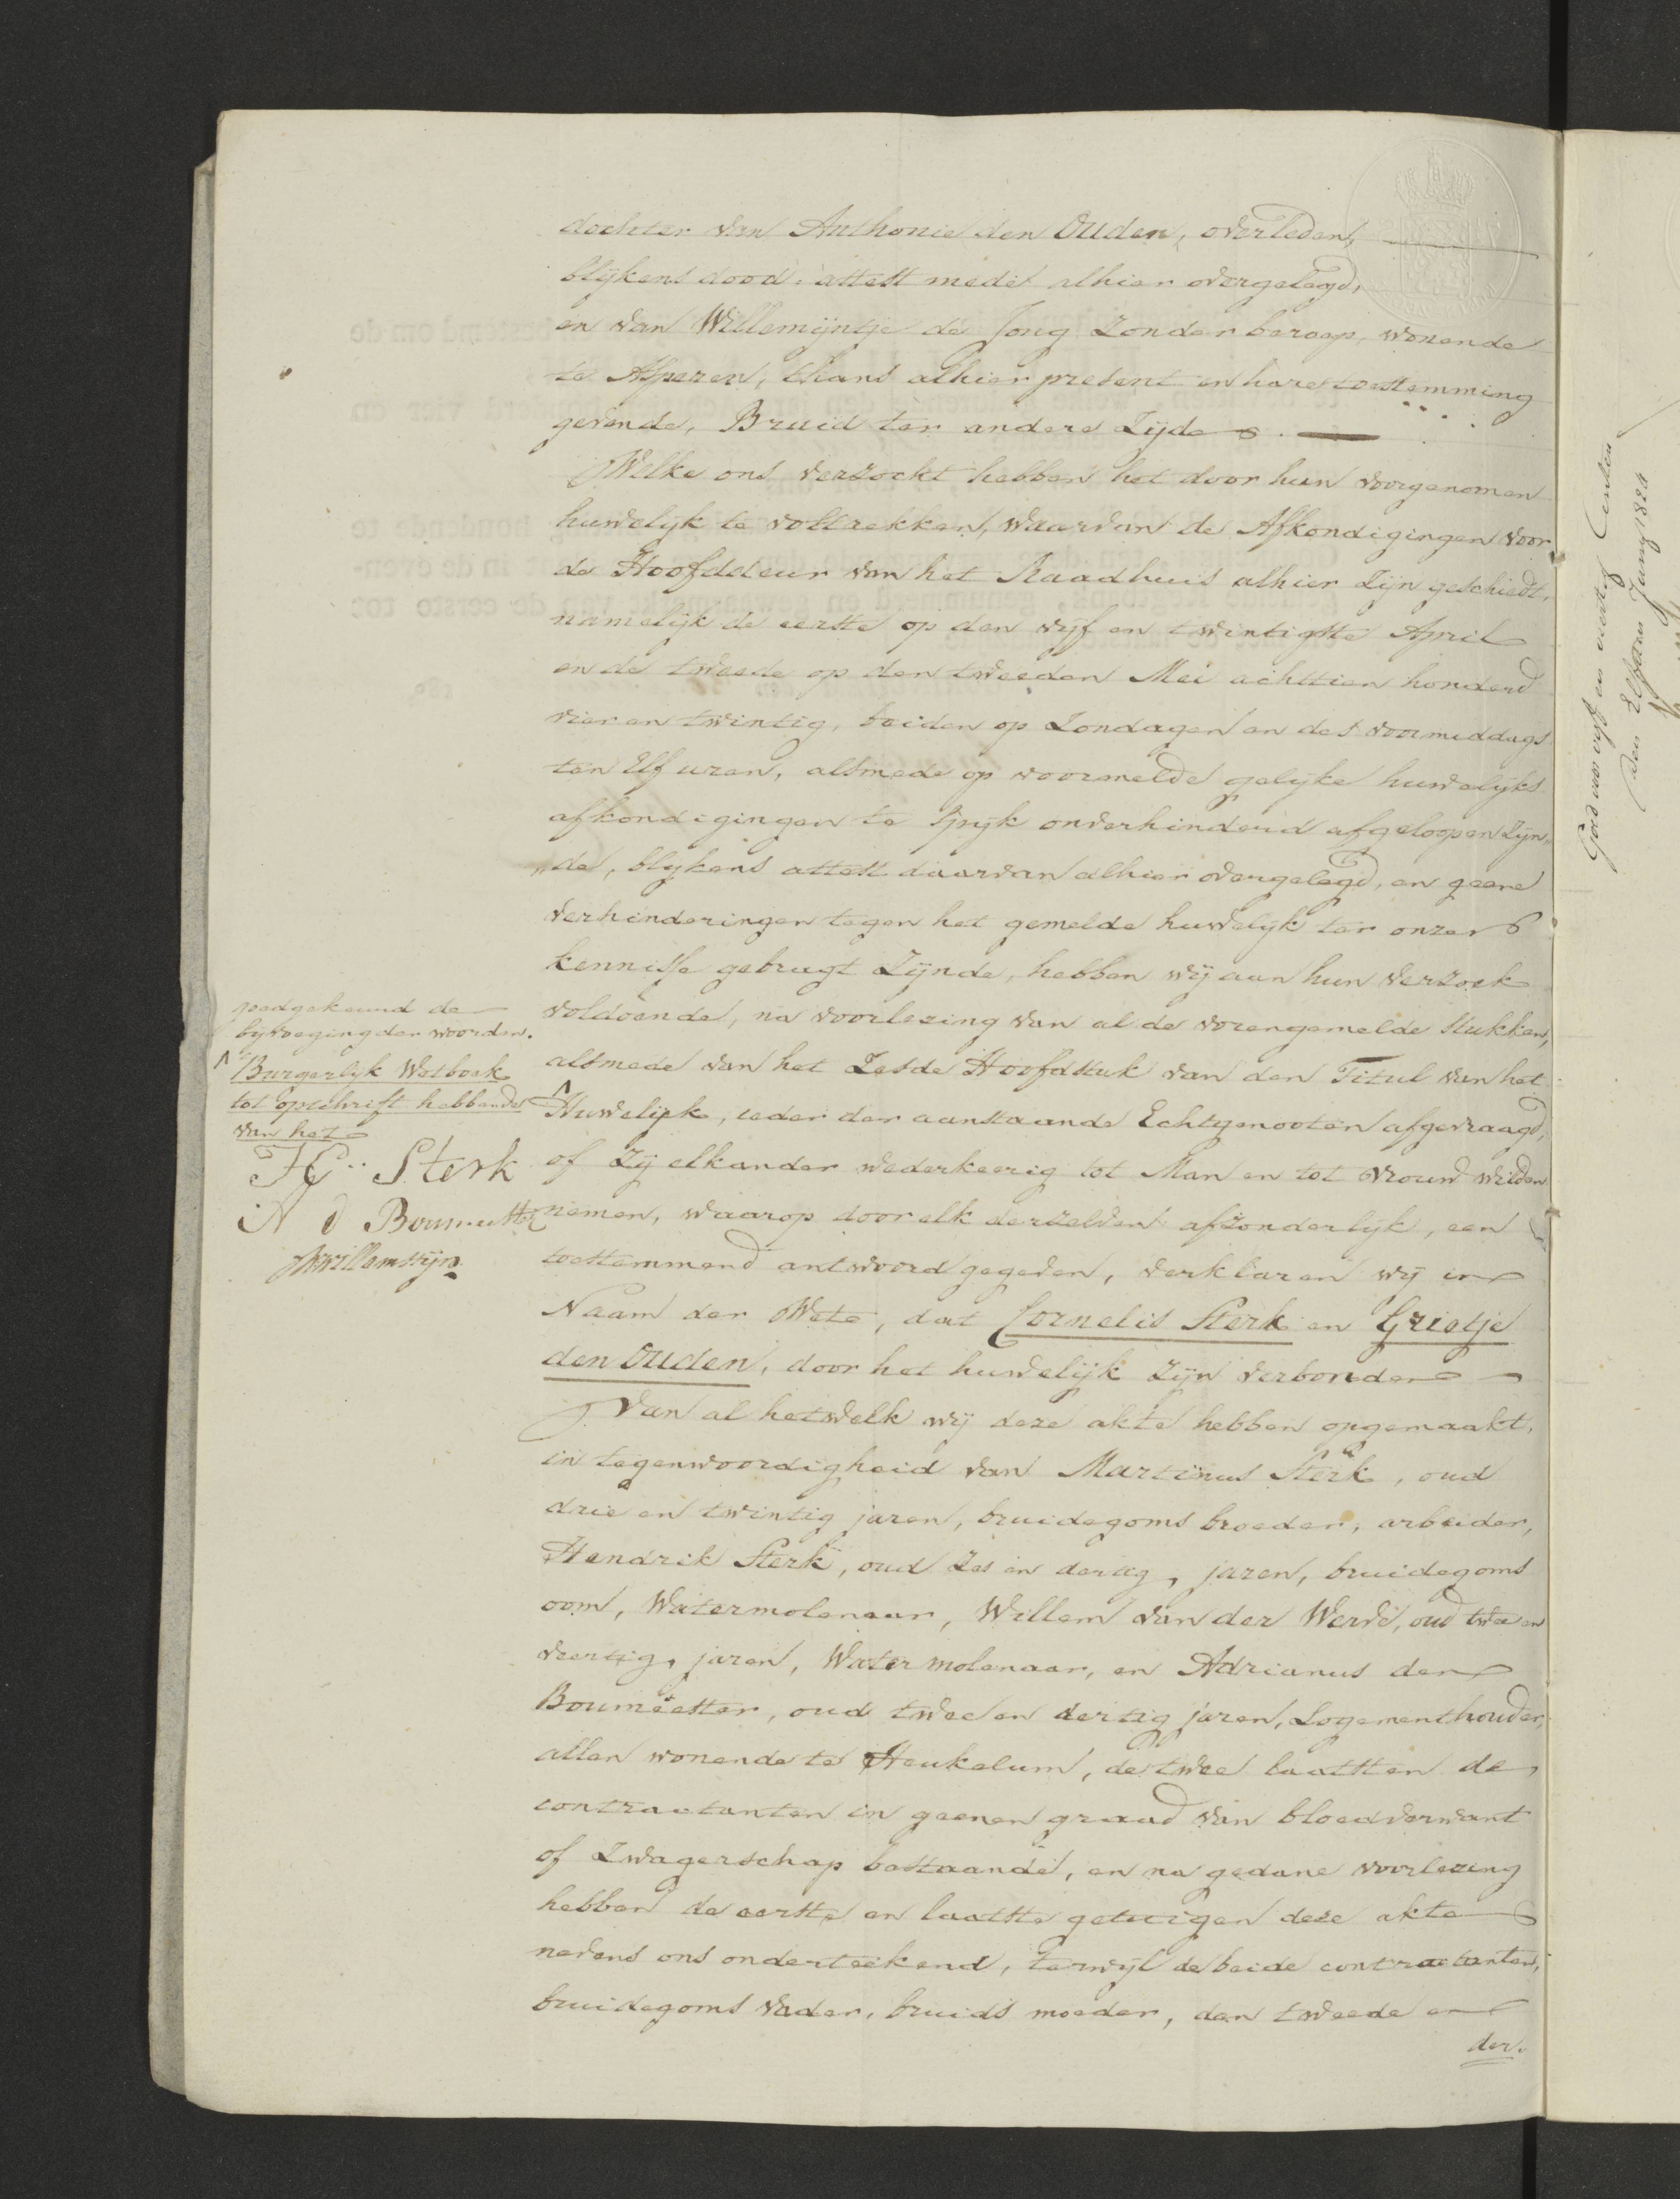 dochter van Anthonie den Ouden, overleden,
blijkens dood-attest mede alhier overgelegd,
en van Willemijntje de Jong zonder beroep, wonende
te Asperen, thans alhier present en hare toestemming
gevende, Bruid ter andere Zijde.
Welke ons verzocht hebben het door hun voorgenomen
huwelijk te voltrekken, waarvan de Afkondigingen voor
de Hoofddeur van het Raadhuis alhier zijn geschiedt,
namelijk de eerste op den vijf en twintigste April
en de tweede op den tweeden Mei achttien honderd
vier en twintig, beiden op Zondagen en des voormiddags
ten Elf uren, alsmede op voormelde gelijke huwelijks
afkondigingen te Spijk onverhinderd afgeloopen zijn„
„de, blijkens attest daarvan alhier overgelegd, en geene
verhinderingen tegen het gemelde huwelijk ter onzer
kennisse gebragt zijnde, hebben wij aan hun verzoek
voldoende, na voorlezing van al de vorengemelde stukken,
alsmede van het Zesde Hoofdstuk van den Titul van het
^Huwelijk, ieder der aanstaande Echtgenooten afgevraagd,
of zij elkander wederkeerig tot Man en tot Vrouw wilden
nemen, waarop door elk derzelven afzonderlijk, een
toestemmend antwoord gegeven, verklaren wij in
Naam der Wete, dat Cornelis Sterk en Grietje
den Ouden, door het huwelijk zijn verbonden
Van al hetwelk wij deze akte hebben opgemaakt,
in tegenwoordigheid van Martinus Sterk, oud
drie en twintig jaren, bruidegoms broeder, arbeider,
Hendrik Sterk, oud zes en dertig, jaren, bruidegoms
oom, Watermolenaar, Willem van der Werve, oud twee en
veertig, jaren, Watermolenaar, en Adrianus den
Boumeester, oud twee en dertig jaren, Logementhouder,
allen wonende te Heukelum, de twee laatsten de
contractanten in geenen graad van bloedverwant
of Zwagerschap bestaande, en na gedane voorlezing
hebben de eerste en laatste getuigen deze akte
nevens ons onderteekend, terwijl de beide contractanten,
bruidegoms vader, bruids moeder, den tweede en
der.
goedgekeurd de
bijvoeging der woorden.
^ Burgerlijk Wetboek
tot opschrift hebbende
van het
Sterk
A d Boumeester
Willemstijn
Goed voor vijf en veertig Centen
den Elfden Juny 1824